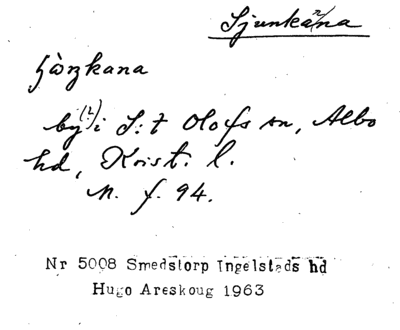 Sjunkana
by (?) i S:t Olofs sn, Albo
hd, Krist. l.
M. f. 94.
Nr 5008 Smedstorp Ingelstads hd
Hugo Areskoug 1963